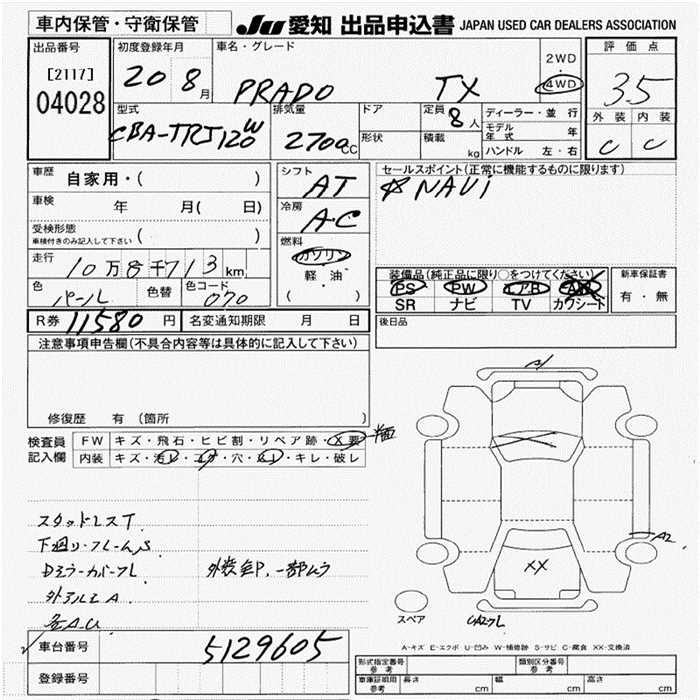 車内保管・守衛保管
JU 愛知 出品申込書 JAPAN USED CAR DEALERS ASSOCIATION
出品番号
[2117]
04028
初度登録年月
20 8月
車名・グレード
PRADO TX
2WD
・
4WD
評価点
3.5
外装 内装
C C
型式
CBA-TRJ120W
排気量
2700cc
ドア
形状
定員
8人
積載
kg
ディーラー・並行
モデル年式 年
ハンドル 左・右
車歴
自家用・( )
車検
年 月( 日)
受検形態
車検付きのみ記入して下さい ( )
走行
10万8千713km
色
パール
色替
色コード
070
シフト
AT
冷房
A・C
燃料
ガソリン
軽・油
・
( )
セールスポイント(正常に機能するものに限ります)
NAVi
装備品(純正品に限り○をつけてください)
PS PW エアB AW
SR ナビ TV カワシート
新車保証書
有・無
R券 11580円
名変通知期限 月 日
後日品
注意事項申告欄(不具合内容等は具体的に記入して下さい)
修復歴 有(箇所 )
検査員
記入欄
FW キズ・飛石・ヒビ割・リペア跡・X要
内装 キズ・汚レ・コゲ・穴・スレ・キレ・破レ
スタッドレスT.
下廻り・フレームS
Dミラーカバーフレ
外アルミA
外装全P、一部ムラ
A1
A2
XX
スペア
A・キズ E・エクボ U・凹み W・補修跡 S・サビ C・腐食 XX・交換済
車台番号
5129605
登録番号
形式指定番号
参考
類別区分番号
参考
車庫証明用
参考
長さ cm
幅 cm
高さ cm